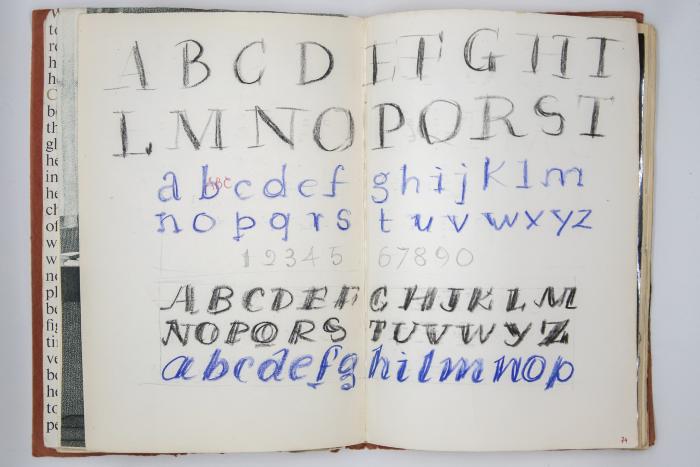 A B C D E F G H I
L M N O P Q R S T
a b c d e f g h i j k l m
ABC
n o p q r s t u v w x y z
1 2 3 4 5 6 7 8 9 0
A B C D E F G H J K L M
N O P Q R S T U V W Y Z
a b c d e f g h i l m n o p
74